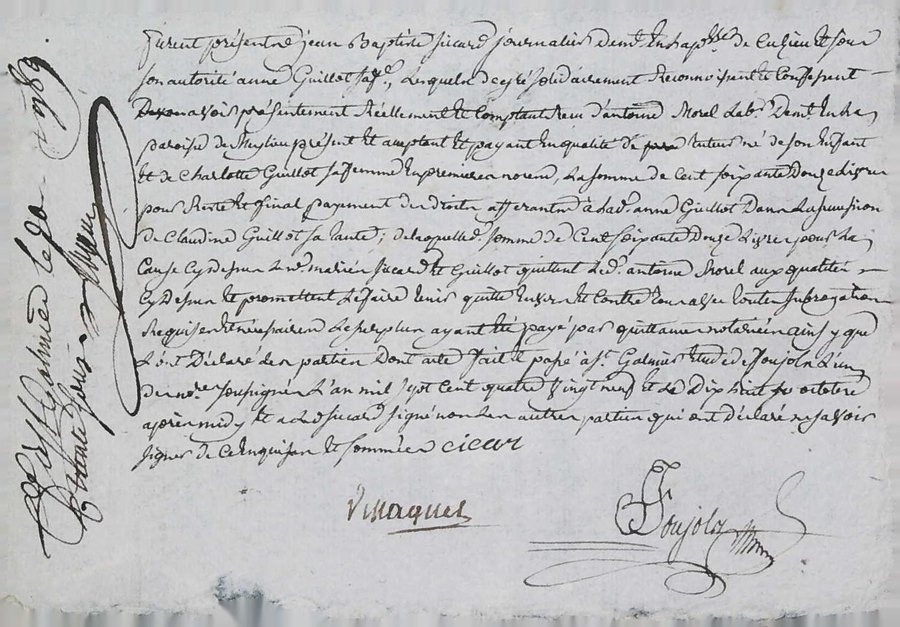 furent présents jean Baptiste sicard journalier demt en la psse de Cuzieu et sous
son autorité anne Guillot sa fe. Lesquels de gré solidairement Reconnoissent et Confessent
avoir présentement Réellement et Comptant Receu d'antoine Morel Labr. Demt en la
paroisse de Meylieu présent et acceptant et payant en qualité de tuteur né de son Enfant
et de Charlotte Guillot sa femme en premieres noces, La somme de Cent soixante Douze Livres
pour Reste et final payement des droits afferants à lad. anne Guillot Dans La succession
de Claudine Guillot sa tante; de laquelle d. somme de Cent soixante Douze Livres pour la
Cause Cy dessus Lesd. mariés sicard et Guillot quittent Led. antoine Morel aux qualités
Cy dessus et promettent Le faire tenir quitte Envers et Contre tous avec toutes subrogations
Requises et nécessaires Le surplus ayant été payé par quittances notariées ains y que
L'ont Déclaré Les parties Dont acte fait et passé à st. Galmier Etude de Soujols L'un
des nores soussignés L'an mil sept Cent quatre vingt neuf et Le Dix huit octobre
après midy et a Led sicard signé non Les autres parties qui ont déclaré ne savoir
signer de Ce Enquises et sommées cicar
Vissaguet
Soujols
st Galmier le 20 1789